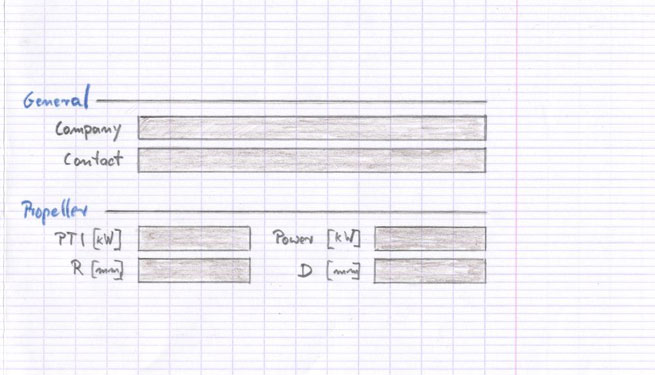 General
Company
Contact
Propeller
PTI [kW] Power [kW]
R [mm] D [mm]